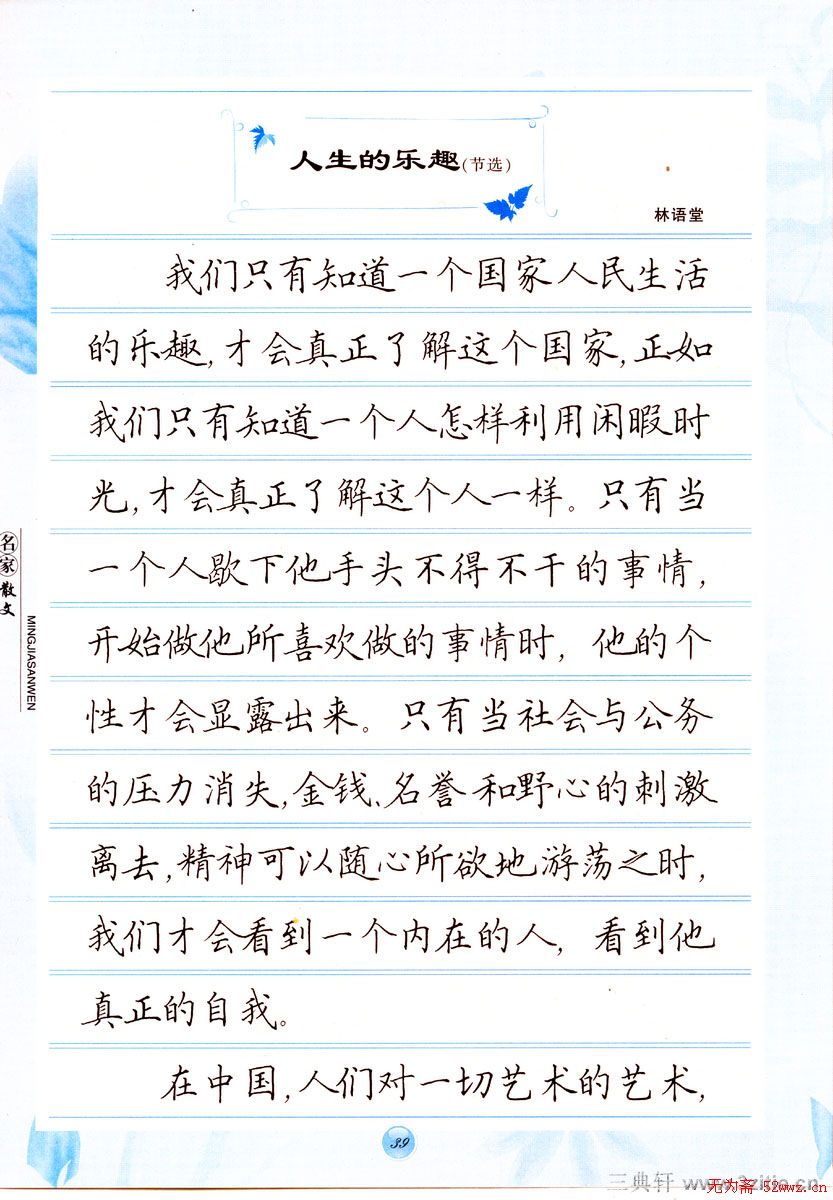 人生的乐趣(节选)
林语堂
我们只有知道一个国家人民生活
的乐趣,才会真正了解这个国家,正如
我们只有知道一个人怎样利用闲暇时
光,才会真正了解这个人一样。只有当
一个人歇下他手头不得不干的事情,
开始做他所喜欢做的事情时,他的个
性才会显露出来。只有当社会与公务
的压力消失,金钱、名誉和野心的刺激
离去,精神可以随心所欲地游荡之时,
我们才会看到一个内在的人,看到他
真正的自我。
在中国,人们对一切艺术的艺术,
名家散文
MINGJIASANWEN
39
三典轩
无为斋 52wwz.cn